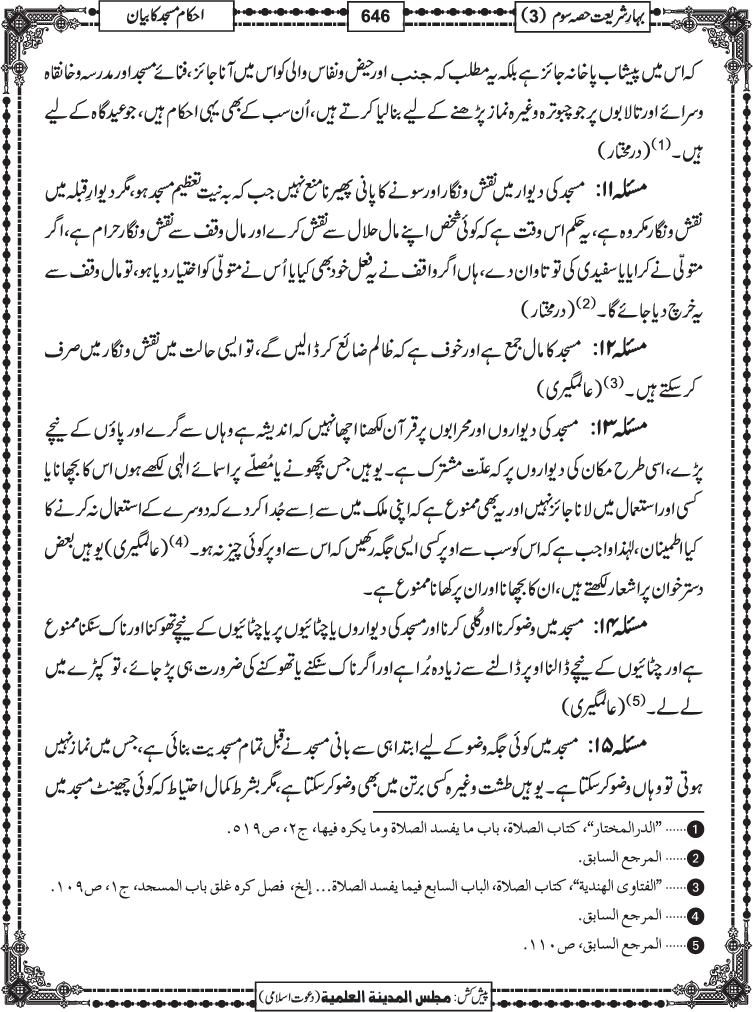 بہارِ شریعت حصہ سوم (3)
646
احکام مسجد کا بیان
کہ اس میں پیشاب پاخانہ جائز ہے بلکہ یہ مطلب کہ جنب اور حیض و نفاس والی کو اس میں آنا جائز، فنائے مسجد اور مدرسہ و خانقاہ
وسرائے اور تالابوں پر جو چبوترہ وغیرہ نماز پڑھنے کے لیے بنا لیا کرتے ہیں، اُن سب کے بھی یہی احکام ہیں، جو عیدگاہ کے لیے
ہیں۔(1) (درمختار)
مسئلہ ۱۱: مسجد کی دیوار میں نقش و نگار اور سونے کا پانی پھیرنا منع نہیں جب کہ بہ نیت تعظیم مسجد ہو، مگر دیوارِ قبلہ میں
نقش و نگار مکروہ ہے، یہ حکم اس وقت ہے کہ کوئی شخص اپنے مال حلال سے نقش کرے اور مال وقف سے نقش و نگار حرام ہے، اگر
متولّی نے کرایا یا سفیدی کی تو تاوان دے، ہاں اگر واقف نے یہ فعل خود بھی کیا یا اُس نے متولّی کو اختیار دیا ہو، تو مال وقف سے
یہ خرچ دیا جائے گا۔(2) (درمختار)
مسئلہ ۱۲: مسجد کا مال جمع ہے اور خوف ہے کہ ظالم ضائع کر ڈالیں گے، تو ایسی حالت میں نقش و نگار میں صرف
کر سکتے ہیں۔(3) (عالمگیری)
مسئلہ ۱۳: مسجد کی دیواروں اور محرابوں پر قرآن لکھنا اچھا نہیں کہ اندیشہ ہے وہاں سے گرے اور پاؤں کے نیچے
پڑے، اسی طرح مکان کی دیواروں پر کہ علّت مشترک ہے۔ یوہیں جس بچھونے یا مُصلّے پر اسمائے الٰہی لکھے ہوں اس کا بچھانا یا
کسی اور استعمال میں لانا جائز نہیں اور یہ بھی ممنوع ہے کہ اپنی ملک میں سے اِسے جُدا کر دے کہ دوسرے کے استعمال نہ کرنے کا
کیا اطمینان، لہٰذا واجب ہے کہ اس کو سب سے اوپر کسی ایسی جگہ رکھیں کہ اس سے اوپر کوئی چیز نہ ہو۔(4) (عالمگیری) یوہیں بعض
دسترخوان پر اشعار لکھتے ہیں، ان کا بچھانا اور ان پر کھانا ممنوع ہے۔
مسئلہ ۱۴: مسجد میں وضو کرنا اور کُلی کرنا اور مسجد کی دیواروں یا چٹائیوں پر یا چٹائیوں کے نیچے تھوکنا اور ناک سنکنا ممنوع
ہے اور چٹائیوں کے نیچے ڈالنا اوپر ڈالنے سے زیادہ بُرا ہے اور اگر ناک سنکنے یا تھوکنے کی ضرورت ہی پڑ جائے، تو کپڑے میں
لے لے۔(5) (عالمگیری)
مسئلہ ۱۵: مسجد میں کوئی جگہ وضو کے لیے ابتدا ہی سے بانی مسجد نے قبل تمام مسجدیت بنائی ہے، جس میں نماز نہیں
ہوتی تو وہاں وضو کر سکتا ہے۔ یوہیں طشت وغیرہ کسی برتن میں بھی وضو کر سکتا ہے، مگر بشرط کمال احتیاط کہ کوئی چھینٹ مسجد میں
1 ...... "الدرالمختار"، کتاب الصلاة، باب ما يفسد الصلاة وما يكره فيها، ج۲، ص۵۱۹.
2 ...... المرجع السابق.
3 ...... "الفتاوی الهندية"، كتاب الصلاة، الباب السابع فيما يفسد الصلاة... إلخ، فصل كره غلق باب المسجد، ج۱، ص۱۰۹.
4 ...... المرجع السابق.
5 ...... المرجع السابق، ص۱۱۰.
پیش کش: مجلس المدینة العلمیة (دعوتِ اسلامی)